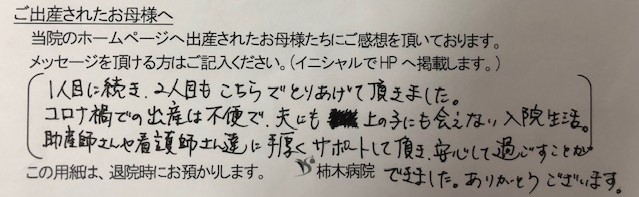 ご出産されたお母様へ
当院のホームページへ出産されたお母様たちにご感想を頂いております。
メッセージを頂ける方はご記入ください。(イニシャルでHPへ掲載します。)
1人目に続き、2人目もこちらでとりあげて頂きました。
コロナ禍での出産は不便で、夫にも上の子にも会えない入院生活。
助産師さんや看護師さん達に手厚くサポートして頂き、安心して過ごすことが
できました。ありがとうございます。
この用紙は、退院時にお預かりします。 柿木病院